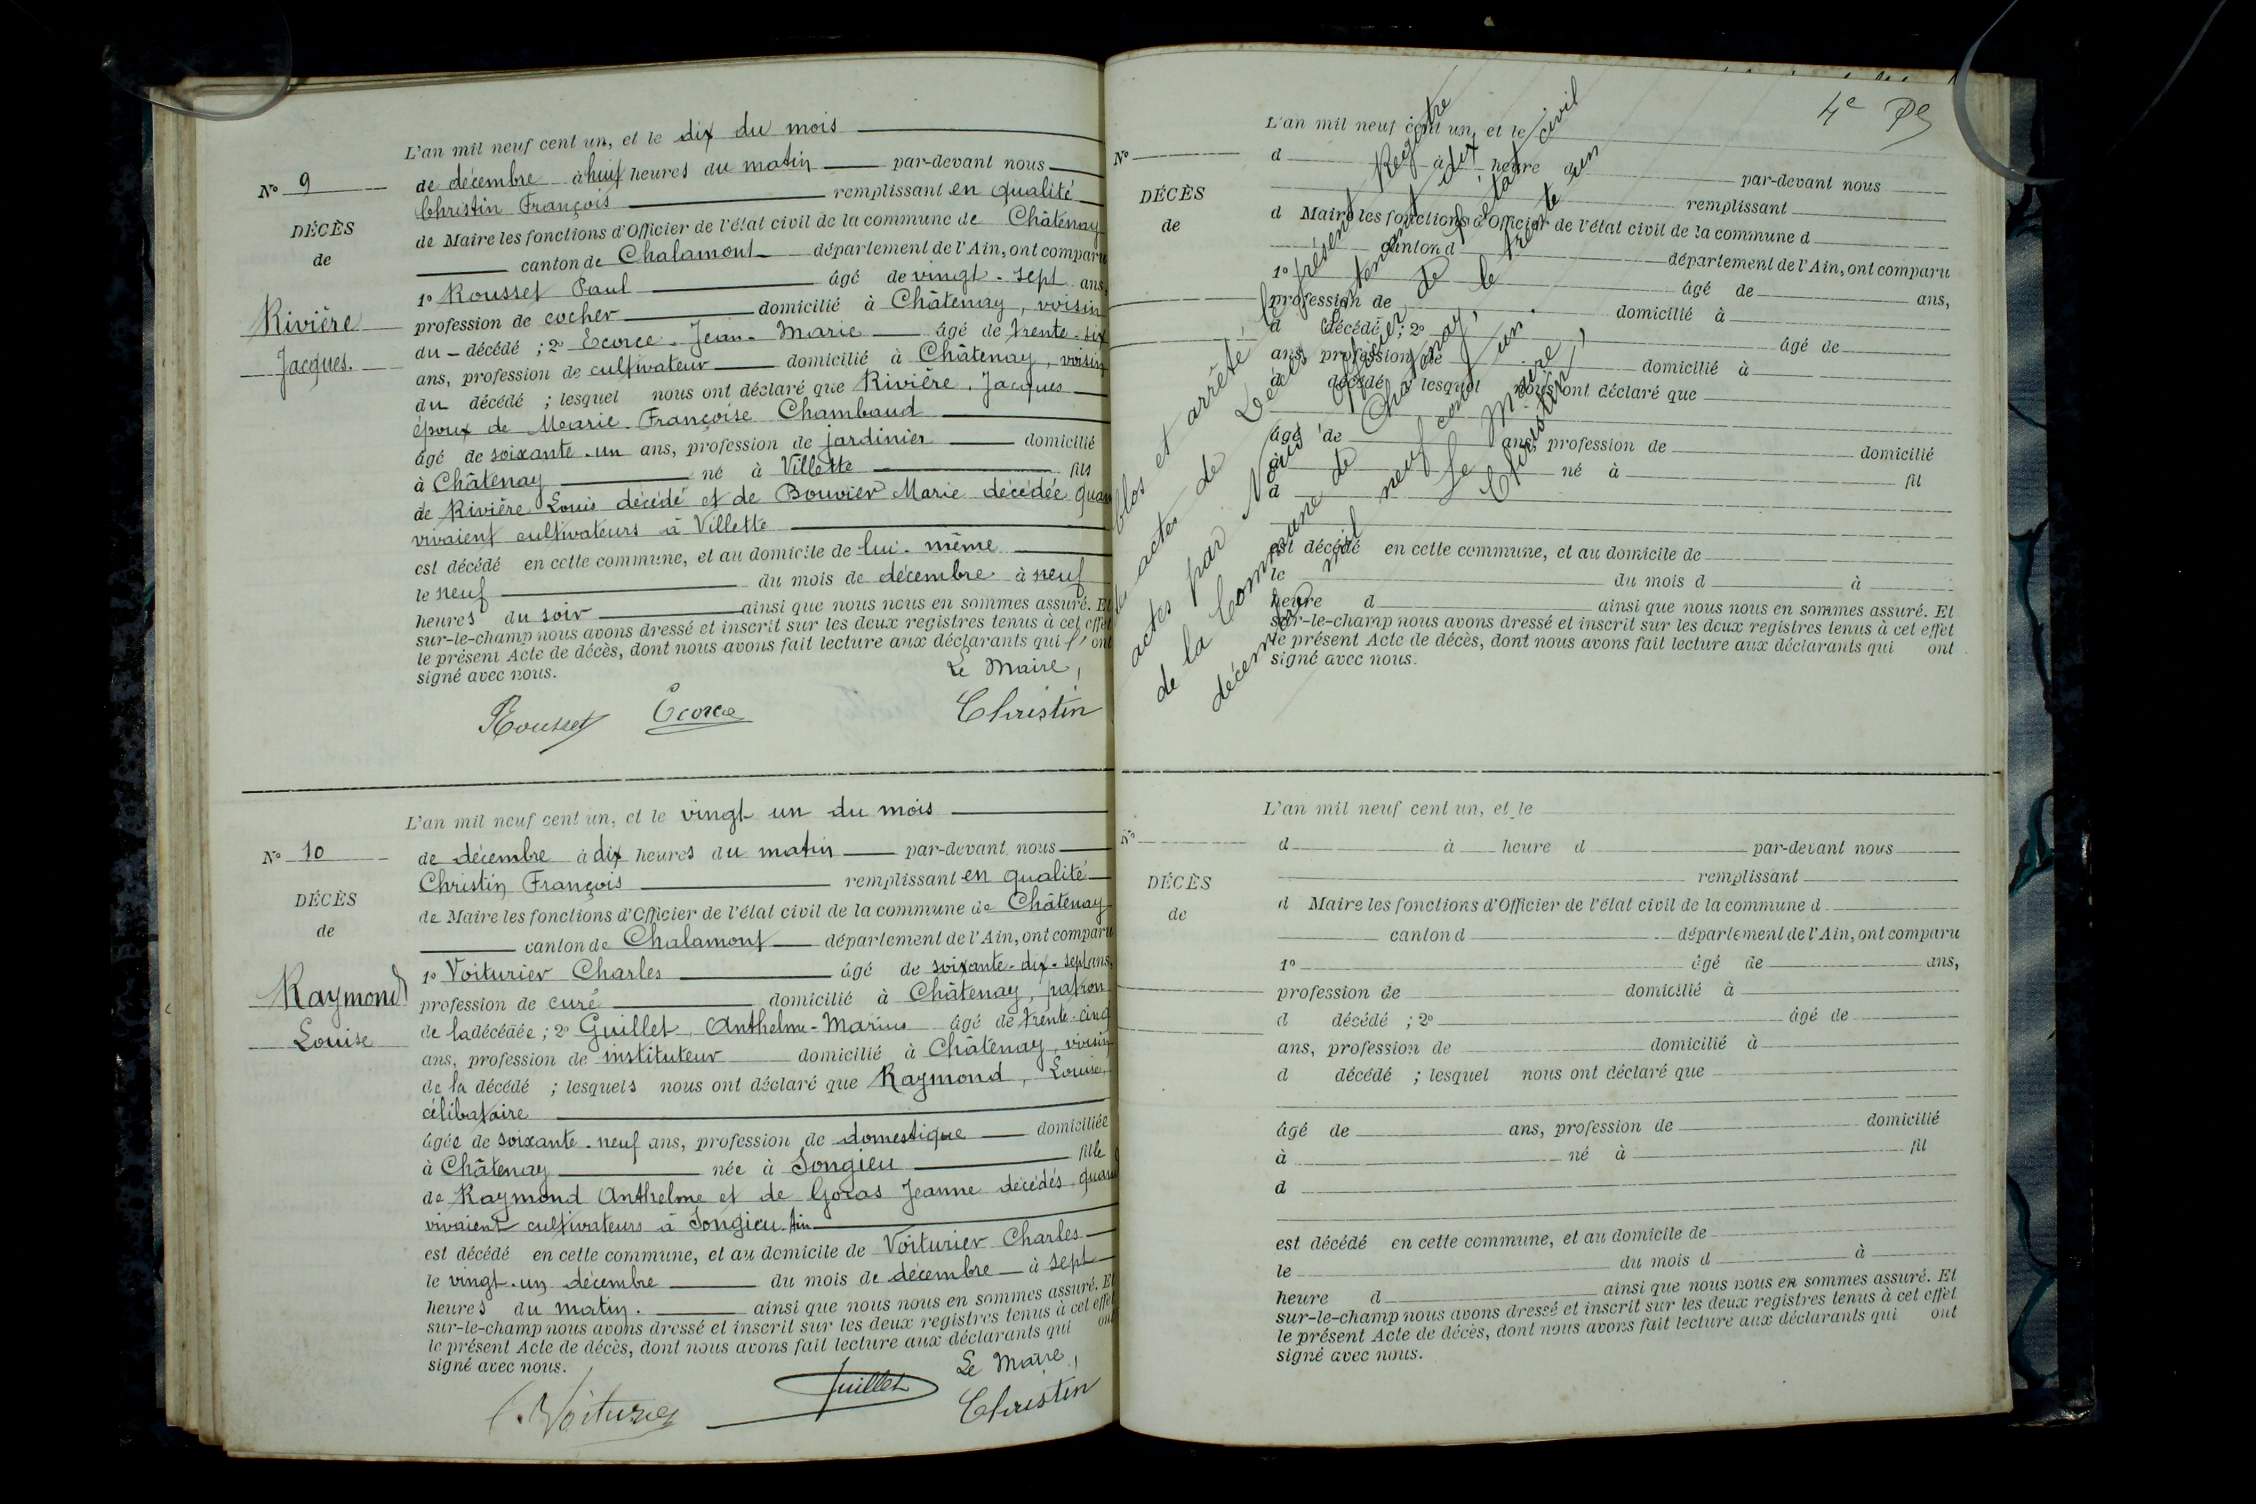 N° 9
DÉCÈS
de
Rivière
Jacques.
L'an mil neuf cent un, et le dix du mois
de décembre à huit heures du matin par-devant nous
Christin François remplissant en qualité
de Maire les fonctions d'Officier de l'état civil de la commune de Châtenay
canton de Chalamont département de l'Ain, ont comparu
1° Rousset Paul âgé de vingt-sept ans,
profession de cocher domicilié à Châtenay, voisin
du décédé ; 2° Ecorce Jean-Marie âgé de trente-six
ans, profession de cultivateur domicilié à Châtenay, voisin
du décédé ; lesquel nous ont déclaré que Rivière, Jacques
époux de Marie Françoise Chambaud
âgé de soixante-un ans, profession de jardinier domicilié
à Châtenay né à Villette fils
de Rivière Louis décédé et de Bouvier Marie décédée quan
vivaient cultivateurs à Villette
est décédé en cette commune, et au domicile de lui-même
le neuf du mois de décembre à neuf
heures du soir ainsi que nous nous en sommes assuré. Et
sur-le-champ nous avons dressé et inscrit sur les deux registres tenus à cet effet
le présent Acte de décès, dont nous avons fait lecture aux déclarants qui l'ont
signé avec nous.
Le Maire,
Rousset Ecorce Christin
N° 10
DÉCÈS
de
Raymond
Louise
L'an mil neuf cent un, et le vingt un du mois
de décembre à dix heures du matin par-devant nous
Christin François remplissant en qualité
de Maire les fonctions d'Officier de l'état civil de la commune de Châtenay
canton de Chalamont département de l'Ain, ont comparu
1° Voiturier Charles âgé de soixante-dix-sept ans,
profession de curé domicilié à Châtenay, patron
de la décédée ; 2° Guillet Anthelme-Marius âgé de trente-cinq
ans, profession de instituteur domicilié à Châtenay, voisin
de la décédé ; lesquels nous ont déclaré que Raymond, Louise,
célibataire
âgée de soixante-neuf ans, profession de domestique domiciliée
à Châtenay née à Songieu fille
de Raymond Anthelme et de Goras Jeanne décédés quan
vivaient cultivateurs à Songieu Ain
est décédé en cette commune, et au domicile de Voiturier Charles
le vingt-un décembre du mois de décembre à sept
heures du matin. ainsi que nous nous en sommes assuré. Et
sur-le-champ nous avons dressé et inscrit sur les deux registres tenus à cet effet
le présent Acte de décès, dont nous avons fait lecture aux déclarants qui ont
signé avec nous.
Le Maire,
C. Voiturier Guillet Christin
4e
N°
DÉCÈS
de
L'an mil neuf cent un, et le
d à heure d par-devant nous
remplissant
d Maire les fonctions d'Officier de l'état civil de la commune d
canton d département de l'Ain, ont comparu
1° âgé de ans,
profession de domicilié à
d décédé ; 2° âgé de
ans, profession de domicilié à
d décédé ; lesquel nous ont déclaré que
âgé de ans, profession de domicilié
à né à fil
d
est décédé en cette commune, et au domicile de
le du mois d à
heure d ainsi que nous nous en sommes assuré. Et
sur-le-champ nous avons dressé et inscrit sur les deux registres tenus à cet effet
le présent Acte de décès, dont nous avons fait lecture aux déclarants qui ont
signé avec nous.
Clos et arrêté le présent Registre
des actes de Décès contenant dix
actes par Nous officier de l'état civil
de la Commune de Châtenay, le trente un
décembre mil neuf cent un.
Le Maire,
Christin
N°
DÉCÈS
de
L'an mil neuf cent un, et le
d à heure d par-devant nous
remplissant
d Maire les fonctions d'Officier de l'état civil de la commune d
canton d département de l'Ain, ont comparu
1° âgé de ans,
profession de domicilié à
d décédé ; 2° âgé de
ans, profession de domicilié à
d décédé ; lesquel nous ont déclaré que
âgé de ans, profession de domicilié
à né à fil
d
est décédé en cette commune, et au domicile de
le du mois d à
heure d ainsi que nous nous en sommes assuré. Et
sur-le-champ nous avons dressé et inscrit sur les deux registres tenus à cet effet
le présent Acte de décès, dont nous avons fait lecture aux déclarants qui ont
signé avec nous.